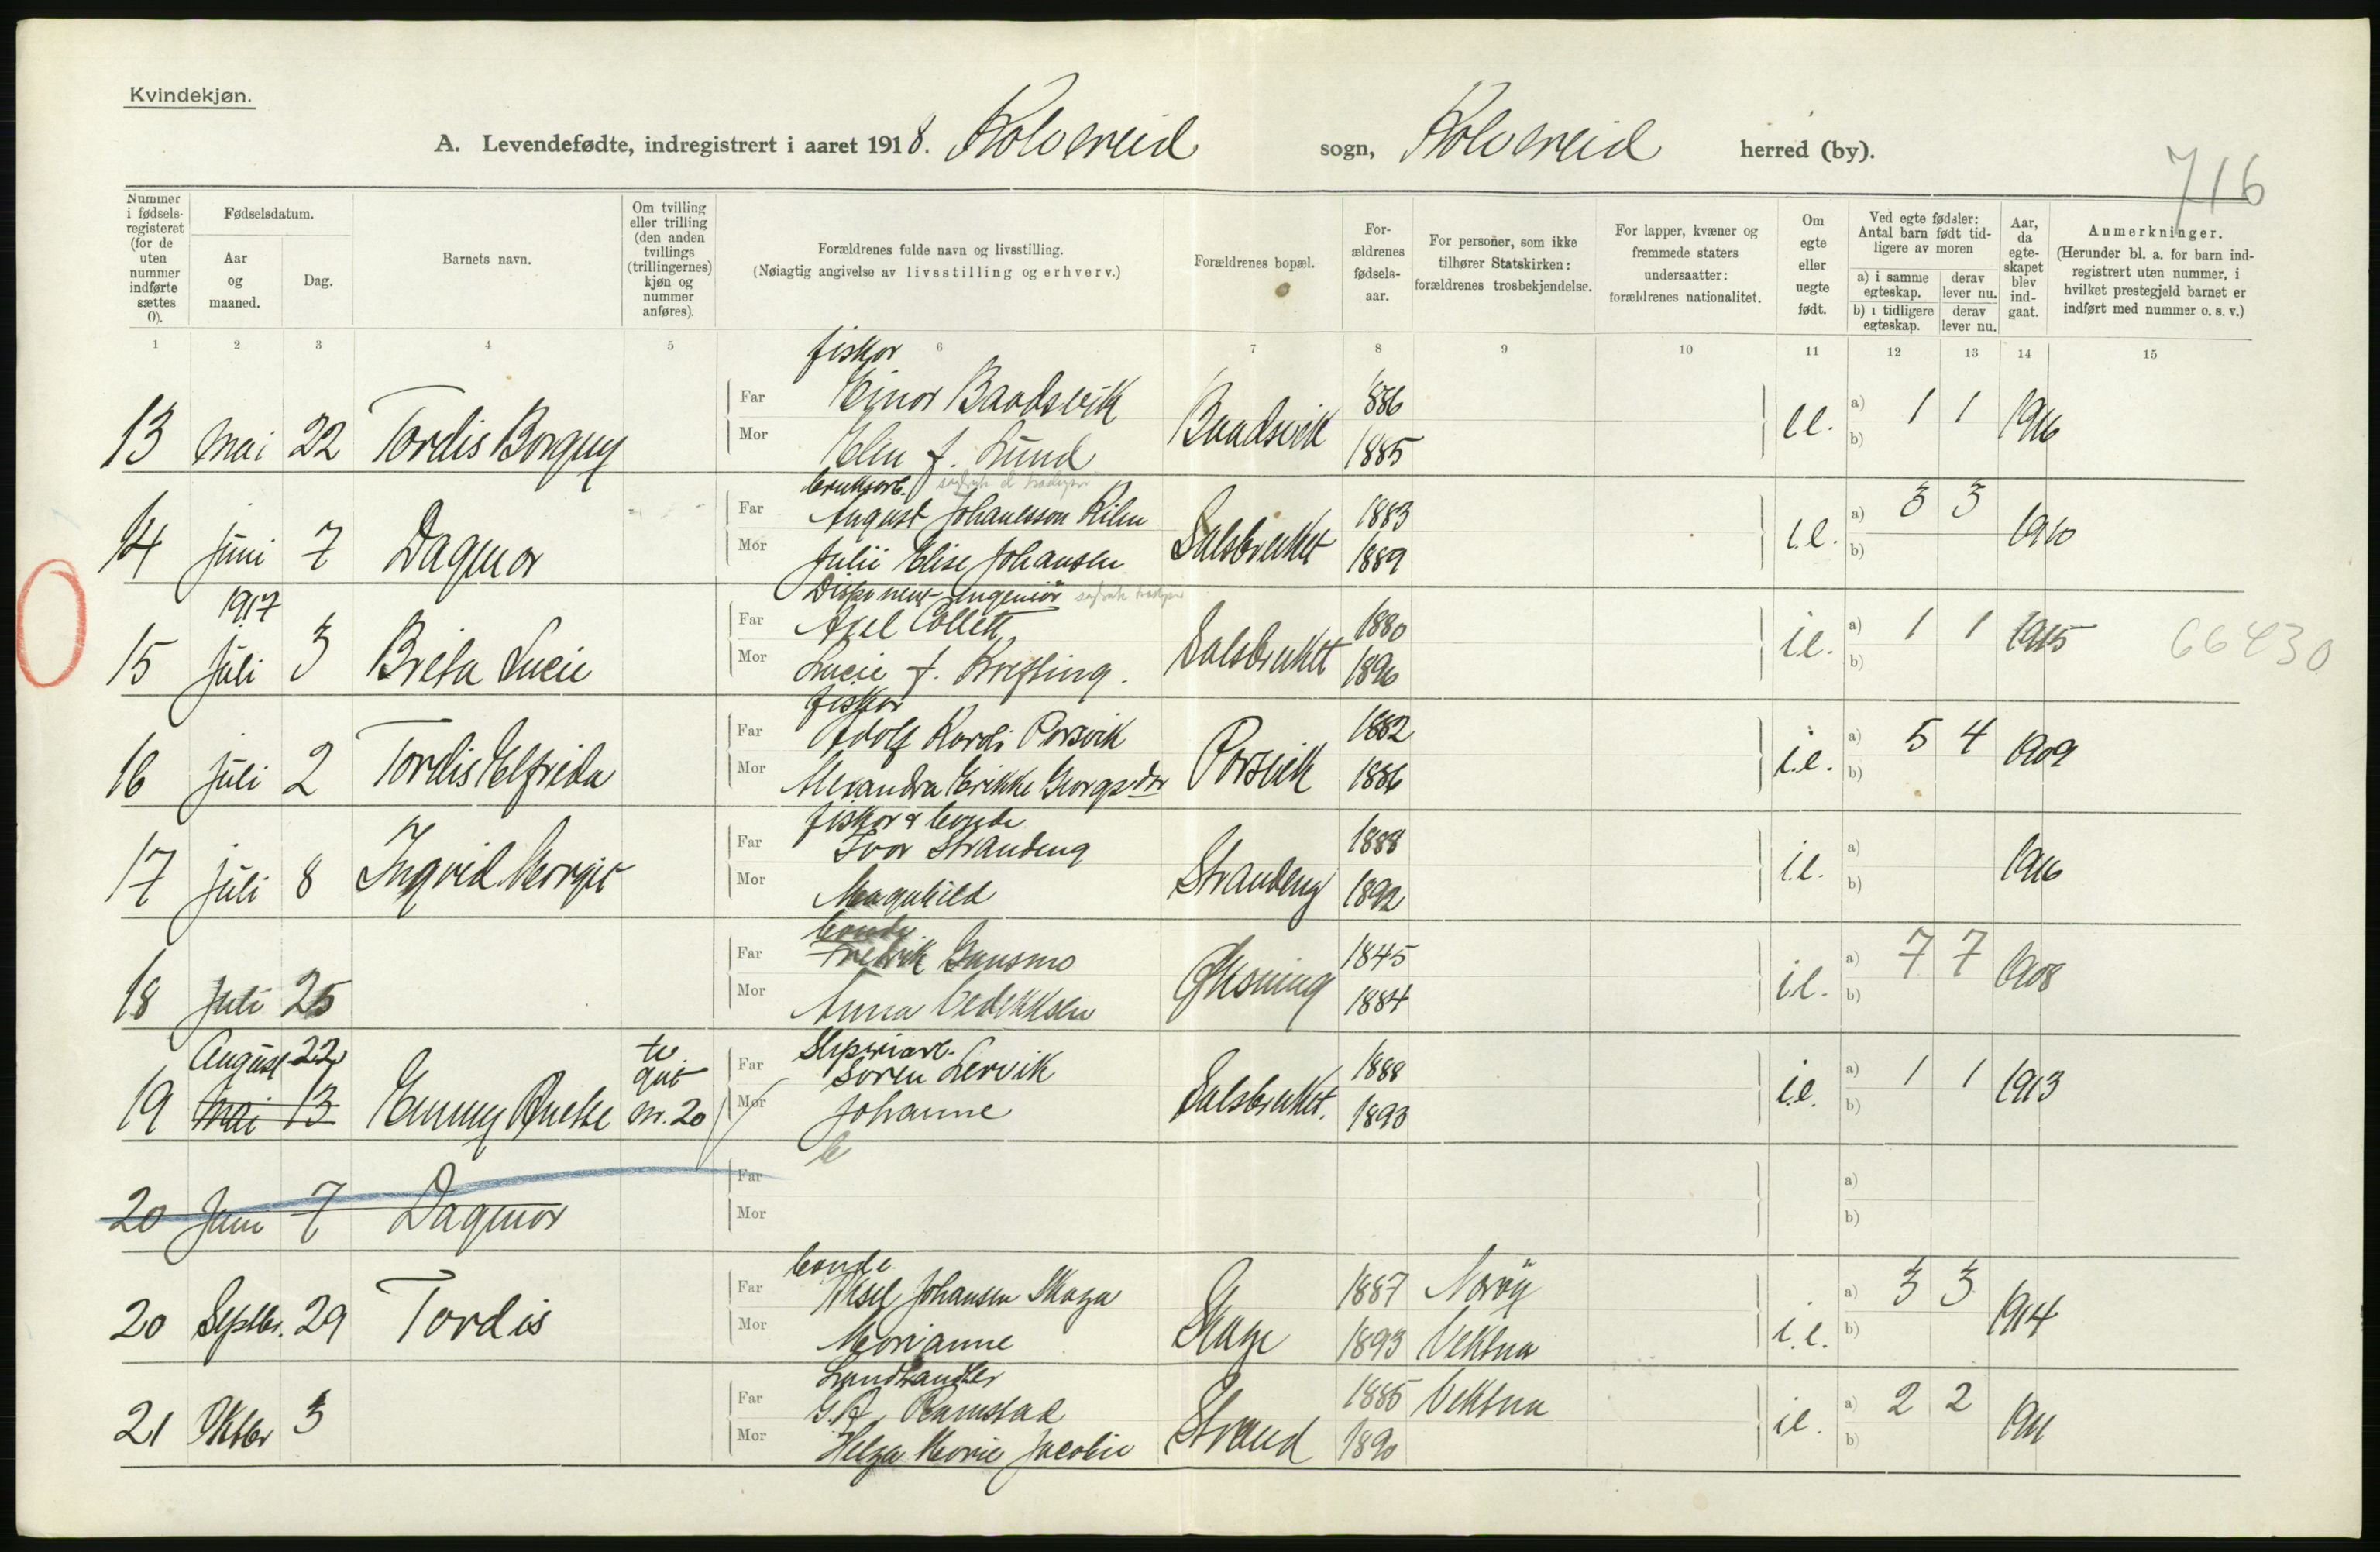 Kvindekjøn.
A. Levendefødte, indregistrert i aaret 1918. Kolvereid sogn, Kolvereid herred (by).
716
Nummer i fødsels-registeret (for de uten nummer indførte sættes 0).
Fødselsdatum.
Aar og maaned.
Dag.
Barnets navn.
Om tvilling eller trilling (den anden tvillings (trillingernes) kjøn og nummer anføres).
Forældrenes fulde navn og livsstilling.
(Nøiagtig angivelse av livsstilling og erhverv.)
Forældrenes bopæl.
For-ældrenes fødsels-aar.
For personer, som ikke tilhører Statskirken: forældrenes trosbekjendelse.
For lapper, kvæner og fremmede staters undersaatter: forældrenes nationalitet.
Om egte eller uegte født.
Ved egte fødsler: Antal barn født tid-ligere av moren
a) i samme egteskap. derav lever nu.
b) i tidligere egteskap. derav lever nu.
Aar, da egte-skapet blev ind-gaat.
Anmerkninger.
(Herunder bl. a. for barn ind-registrert uten nummer, i hvilket prestegjeld barnet er indført med nummer o. s. v.)
1 2 3 4 5 6 7 8 9 10 11 12 13 14 15
fisker
Far Einar Baadsvik 886
13 mai 22 Tordis Borguy Baadsvik e.e. a) 1 1 1916
Mor Elen f. Lund 1885 b)
bruksarb.
Far August Johanesson Kilen 1883
14 juni 7 Dagmar Salsbruket i.e. a) 3 3 1910
Mor Julii Elise Johansen 1889 b)
Disponent Ingeniør
1917
Far Axel Collett 1880
15 juli 3 Brita Lucie Salsbruket i.e. a) 1 1 1915 66430
Mor Lucie f. Krefting. 1896 b)
fisker
Far Adolf Kordi Porsvik 1882
16 juli 2 Tordis Elfrida Porsvik i.e. a) 5 4 1909
Mor Alexandra Erikke Georgsdtr 1886 b)
fisker & bonde
Far Ivar Strandeng 1888
17 juli 8 Ingrid Margit Strandeng i.e. a) 1916
Mor Magnhild 1892 b)
bonde
Far Fredrik Gansmo 1845
18 juli 25 i.e. a) 7 7 1908
Mor Anna 1884 b)
August 22
Far Søren Lervik 1888
19 mai 13 Emmy nr. 20 Salsbruket. i.e. a) 1 1 1913
Mor Johanne 1893 b)
Far a)
20 Juni 7 Dagmar
Mor b)
bonde
Far Aksel Johansen Skage 1887 Nærøy
20 Septbr. 29 Tordis Skage i.e. a) 3 3 1914
Mor Marianne 1893 Vektna b)
Landhandler
Far G.A. Ramstad 1885 Vektna
21 Oktbr 3 Strand i.e. a) 2 2 1911
Mor Helga Marie Jacobie 1890 b)